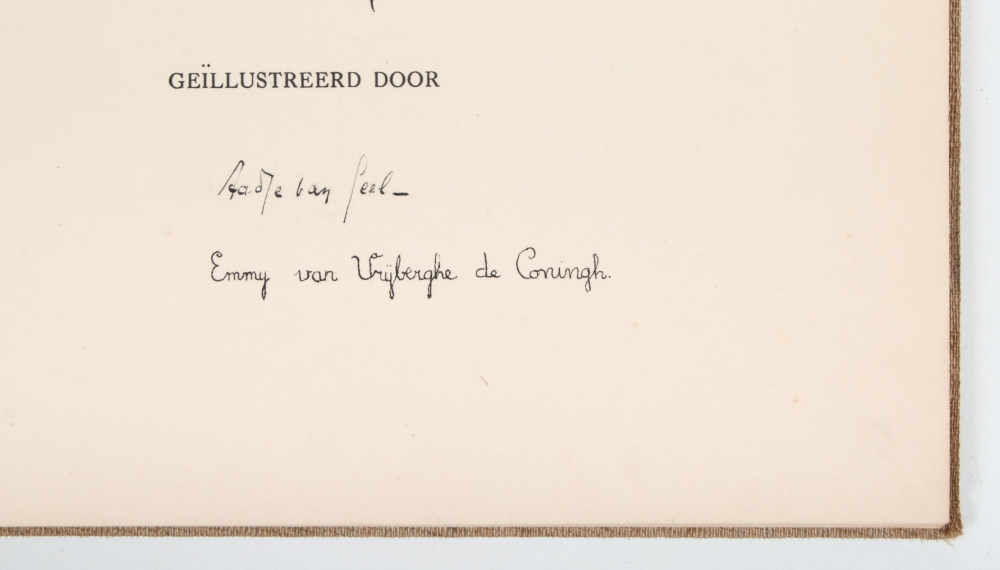 GEÏLLUSTREERD DOOR
Aadje van Geel
Emmy van Vrijberghe de Coningh.